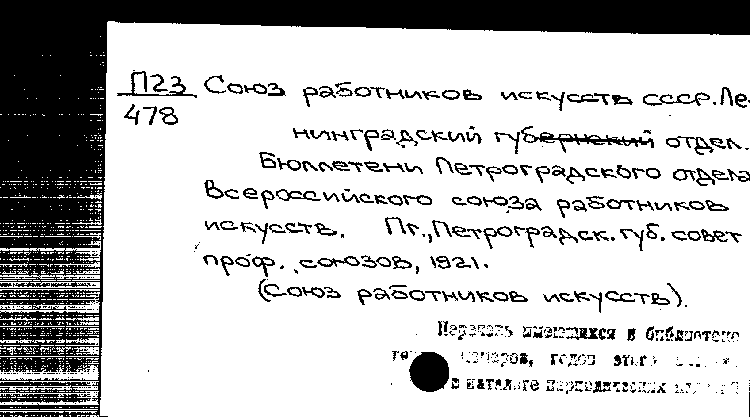 П23 Союз работников искусств СССР. Ле-
478
нинградский губернский отдел.
Бюллетени Петроградского отдела
Всероссийского союза работников
искусств. Пг., Петроградск. губ. совет
проф. союзов, 1921.
(Союз работников искусств).
Перечень имеющихся в библиотеке
номеров, годов этого
в каталоге периодических